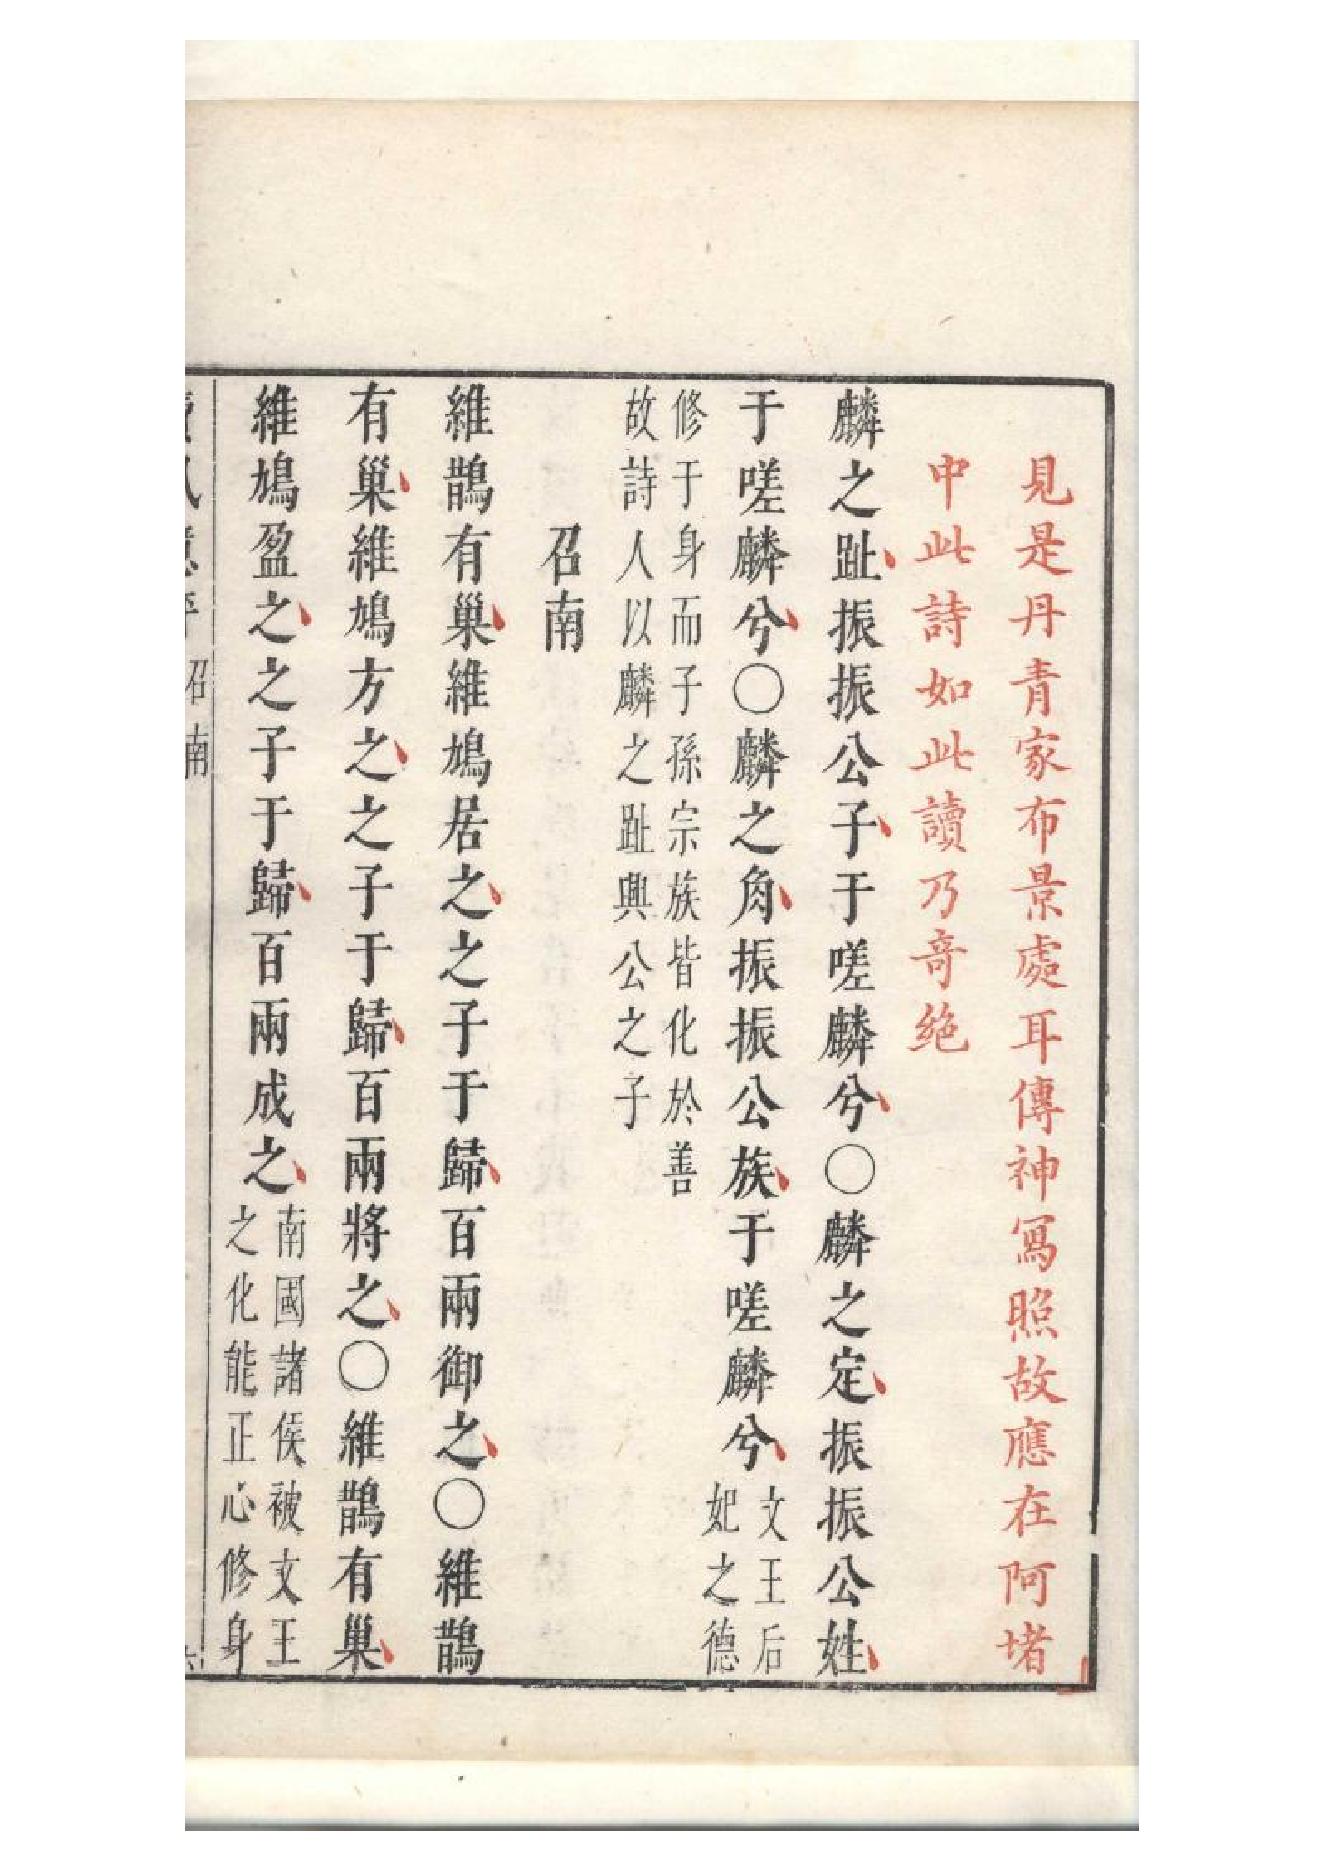 見是丹青家布景處耳傳神寫照故應在阿堵
中此詩如此讀乃奇絶
麟之趾振振公子于嗟麟兮○麟之定振振公姓
于嗟麟兮○麟之角振振公族于嗟麟兮
文王后
妃之德
修于身而子孫宗族皆化於善
故詩人以麟之趾興公之子
召南
維鵲有巢維鳩居之之子于歸百兩御之○維鵲
有巢維鳩方之之子于歸百兩將之○維鵲有巢
維鳩盈之之子于歸百兩成之
南國諸侯被文王
之化能正心修身
召南